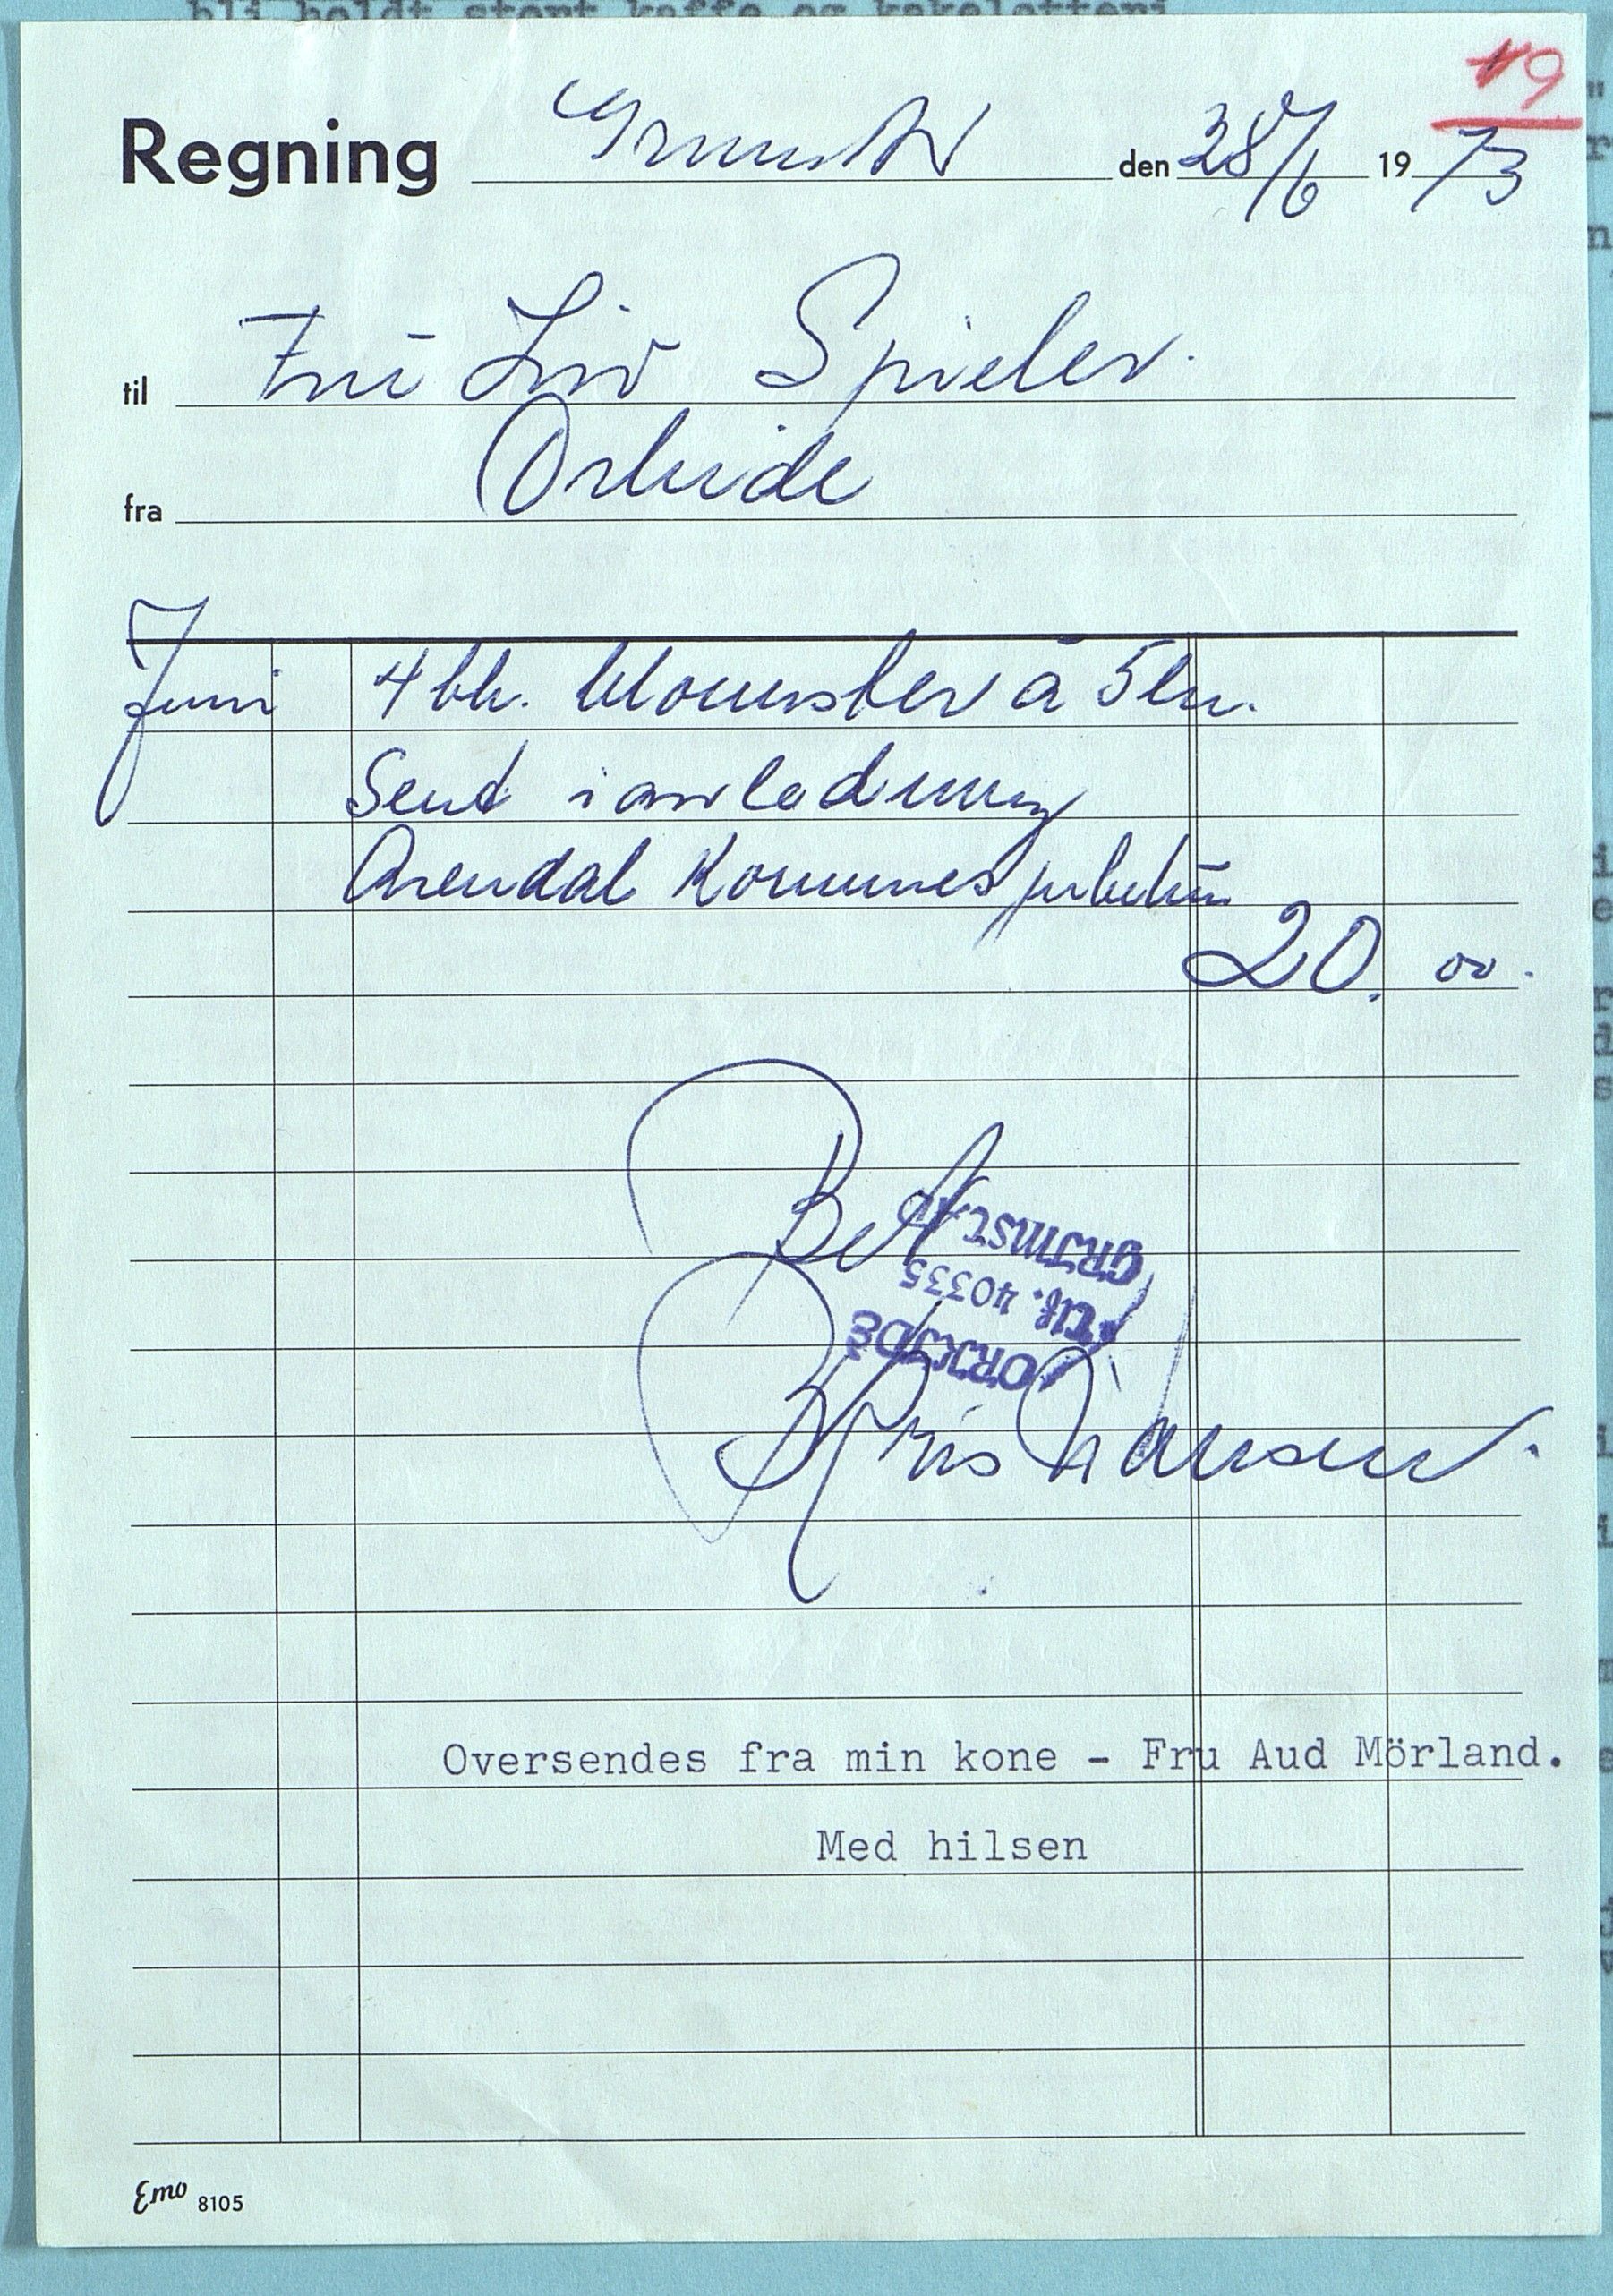 bli holdt stort kaffe og kakelotteri
49
Regning Grimstad den 28/6 1973
til Fru Liv Spieler.
Orkide
fra
Juni 4 bk. blomster a 5 kr.
Sent i anledning
Arendal Kommunes jubileum
20. 00.
Bet
GRIMSTAD
Tlf. 40335
ORKIDE
Kris Hansen.
Oversendes fra min kone - Fru Aud Mörland.
Med hilsen
Emo 8105